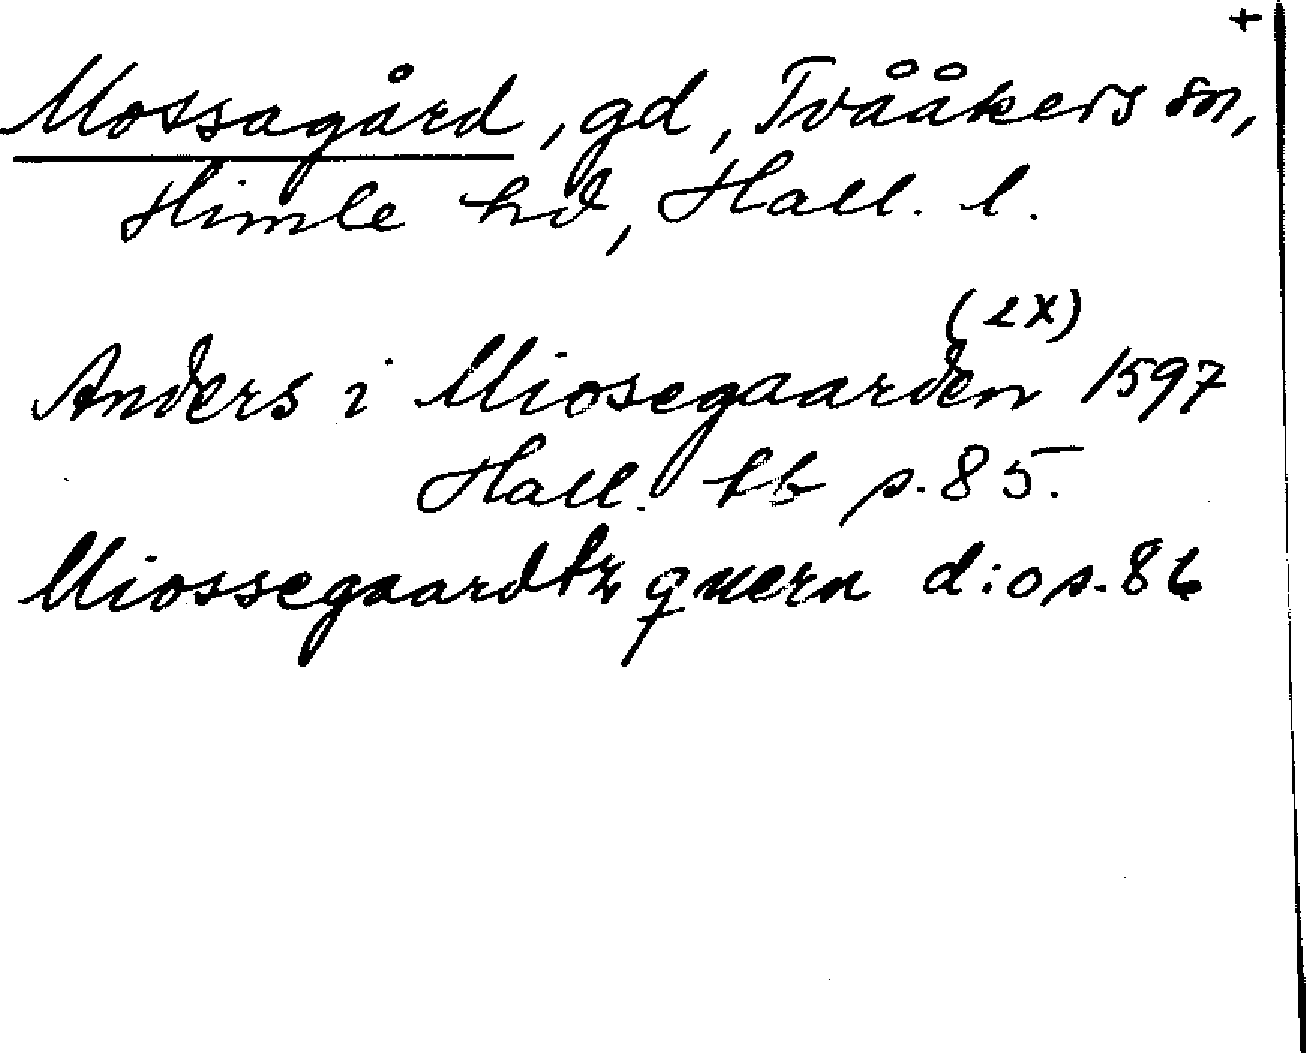 +
Mossagård, gd, Tvååkers sn,
Himle hd, Hall. l.
(2x)
Anders i Miosegaarden 1597
Hall. lb p. 85.
Miossegaardtz quern d:o p. 86